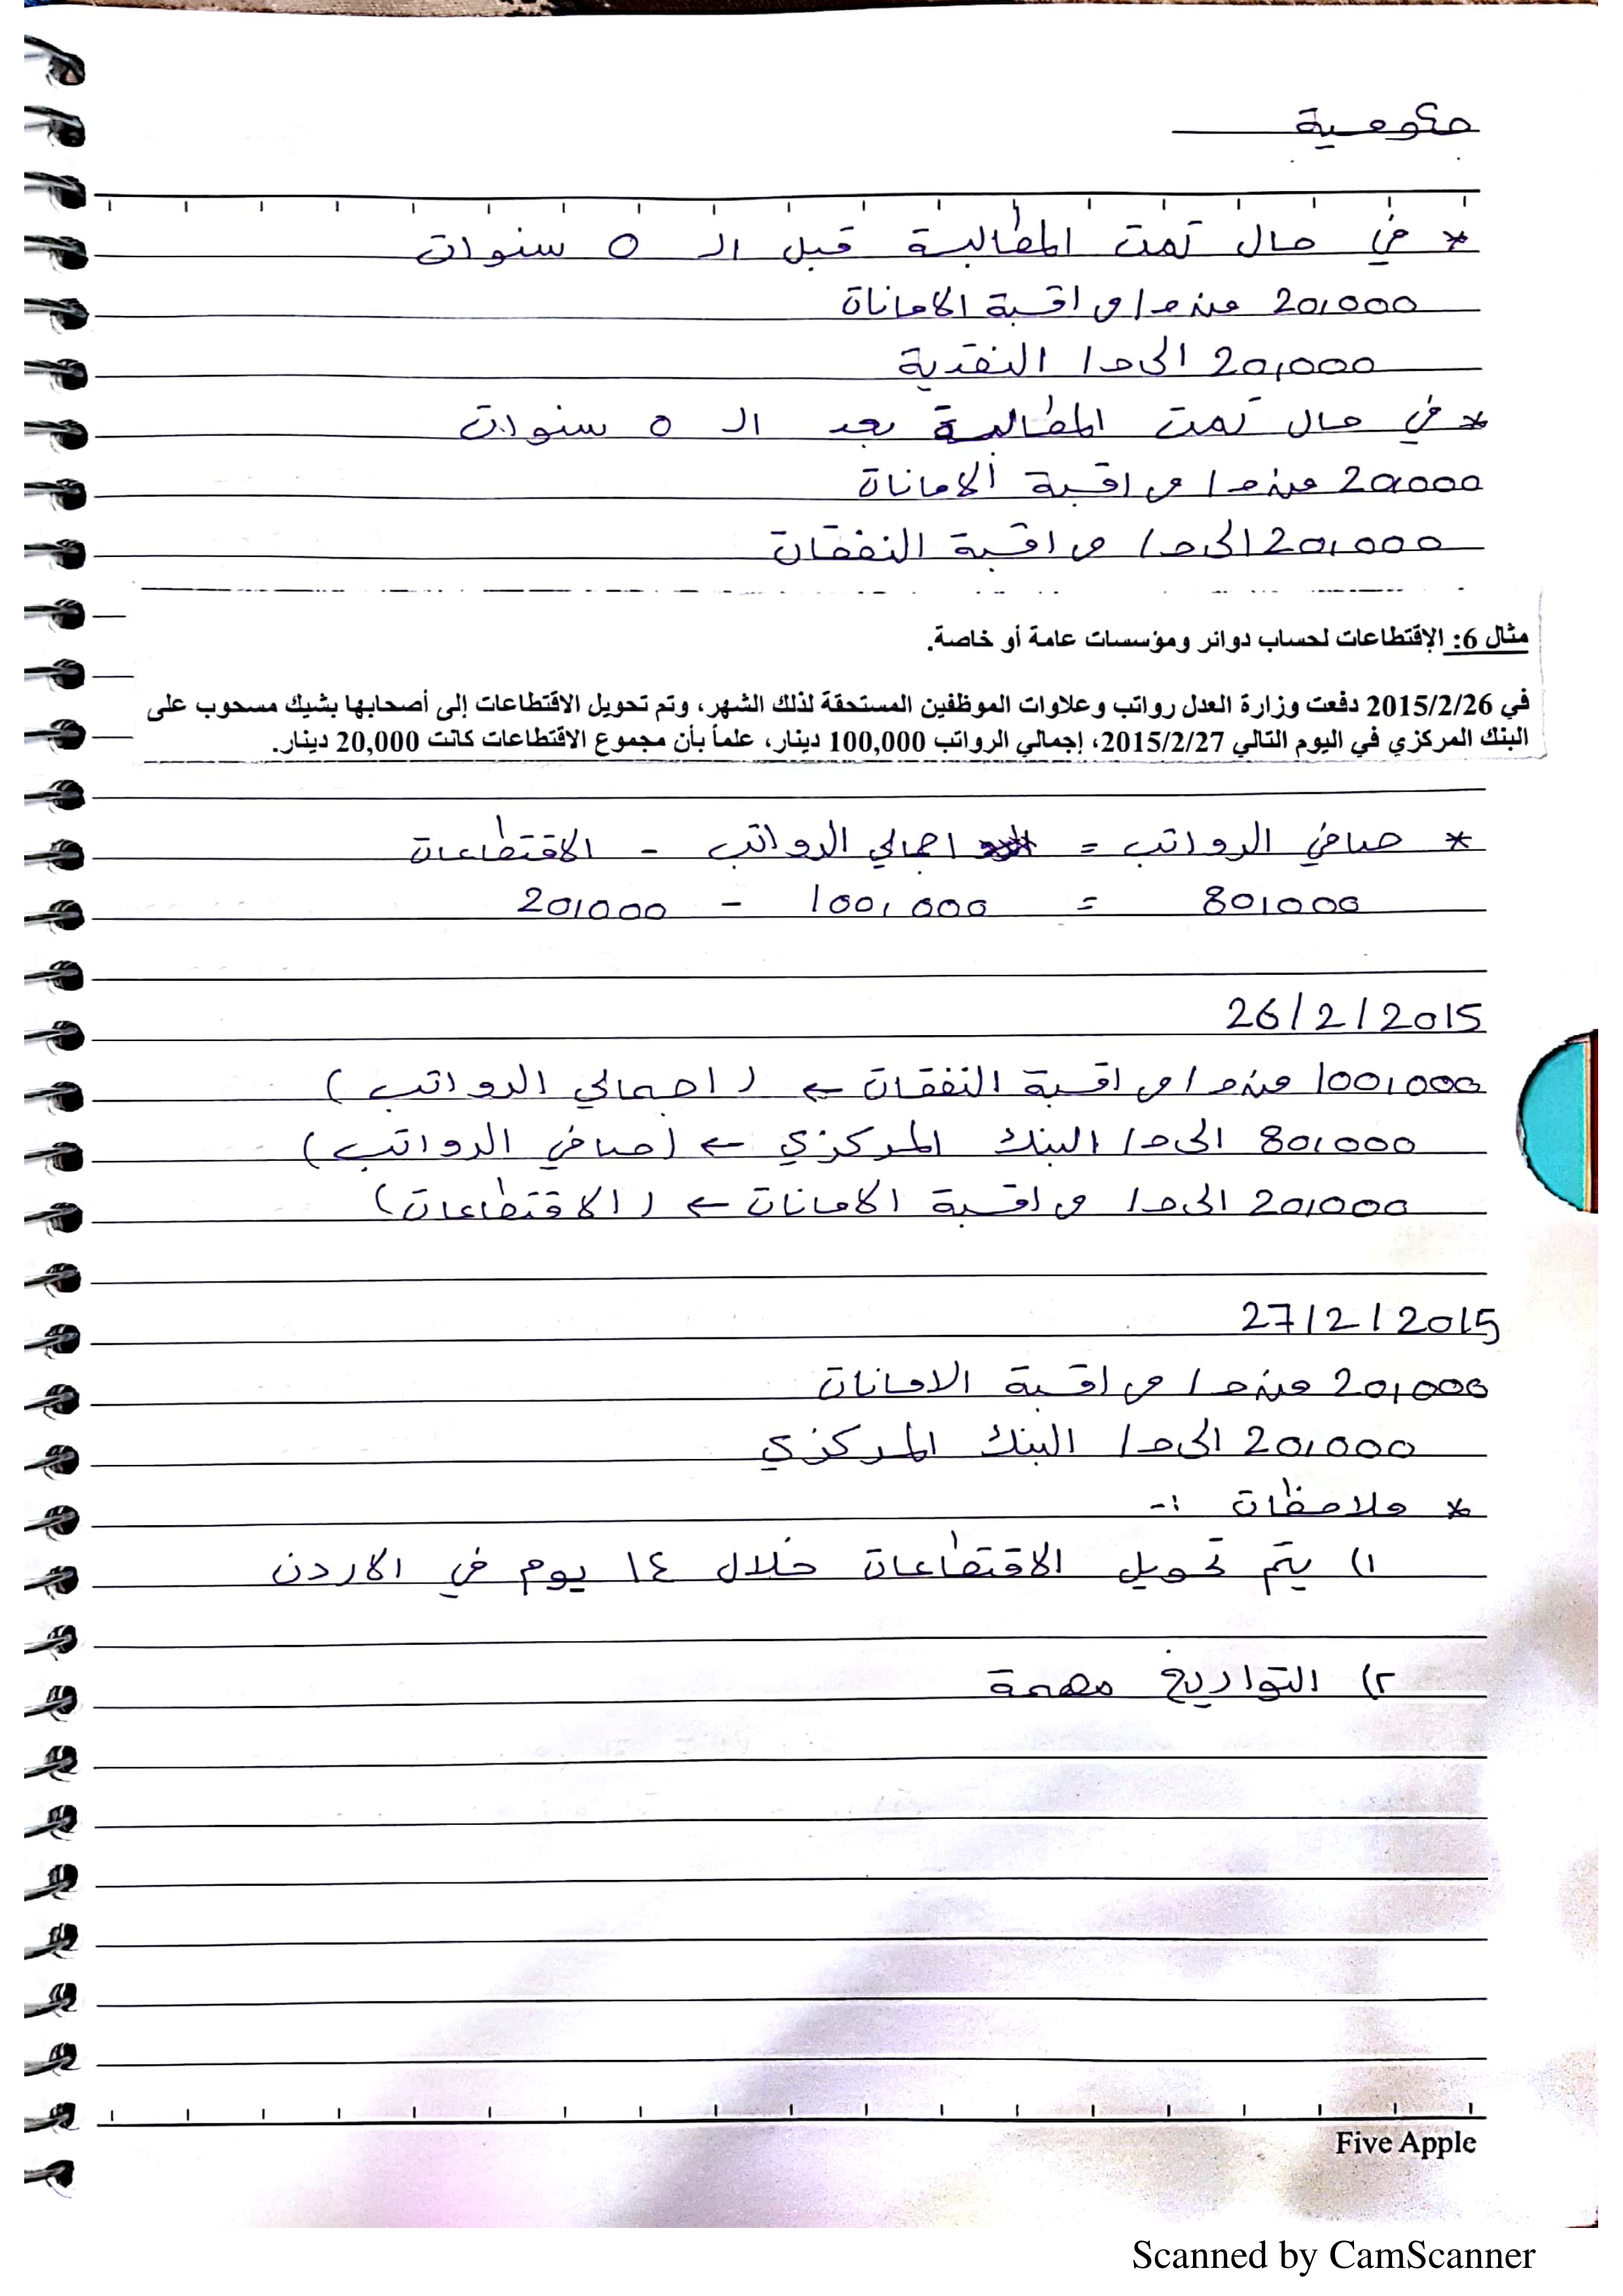 حكومية
* في حال تمت المطالبة قبل ال ٥ سنوات
20,000 من ح/ مراقبة الامانات
20,000 الى ح/ النقدية
* في حال تمت المطالبة بعد ال ٥ سنوات
20,000 من ح/ مراقبة الامانات
20,000 الى ح/ مراقبة النفقات
مثال 6: الإقتطاعات لحساب دوائر ومؤسسات عامة أو خاصة.
في 2015/2/26 دفعت وزارة العدل رواتب وعلاوات الموظفين المستحقة لذلك الشهر، وتم تحويل الاقتطاعات إلى أصحابها بشيك مسحوب على
البنك المركزي في اليوم التالي 2015/2/27، إجمالي الرواتب 100,000 دينار، علماً بأن مجموع الاقتطاعات كانت 20,000 دينار.
* صافي الرواتب = اجمالي الرواتب - الاقتطاعات
80,000 = 100,000 - 20,000
26/2/2015
100,000 من ح/ مراقبة النفقات ← (اجمالي الرواتب)
80,000 الى ح/ البنك المركزي ← (صافي الرواتب)
20,000 الى ح/ مراقبة الامانات ← (الاقتطاعات)
27/2/2015
20,000 من ح/ مراقبة الامانات
20,000 الى ح/ البنك المركزي
* ملاحظات :-
١) يتم تحويل الاقتطاعات خلال ١٤ يوم في الاردن
٢) التواريخ مهمة
Five Apple
Scanned by CamScanner